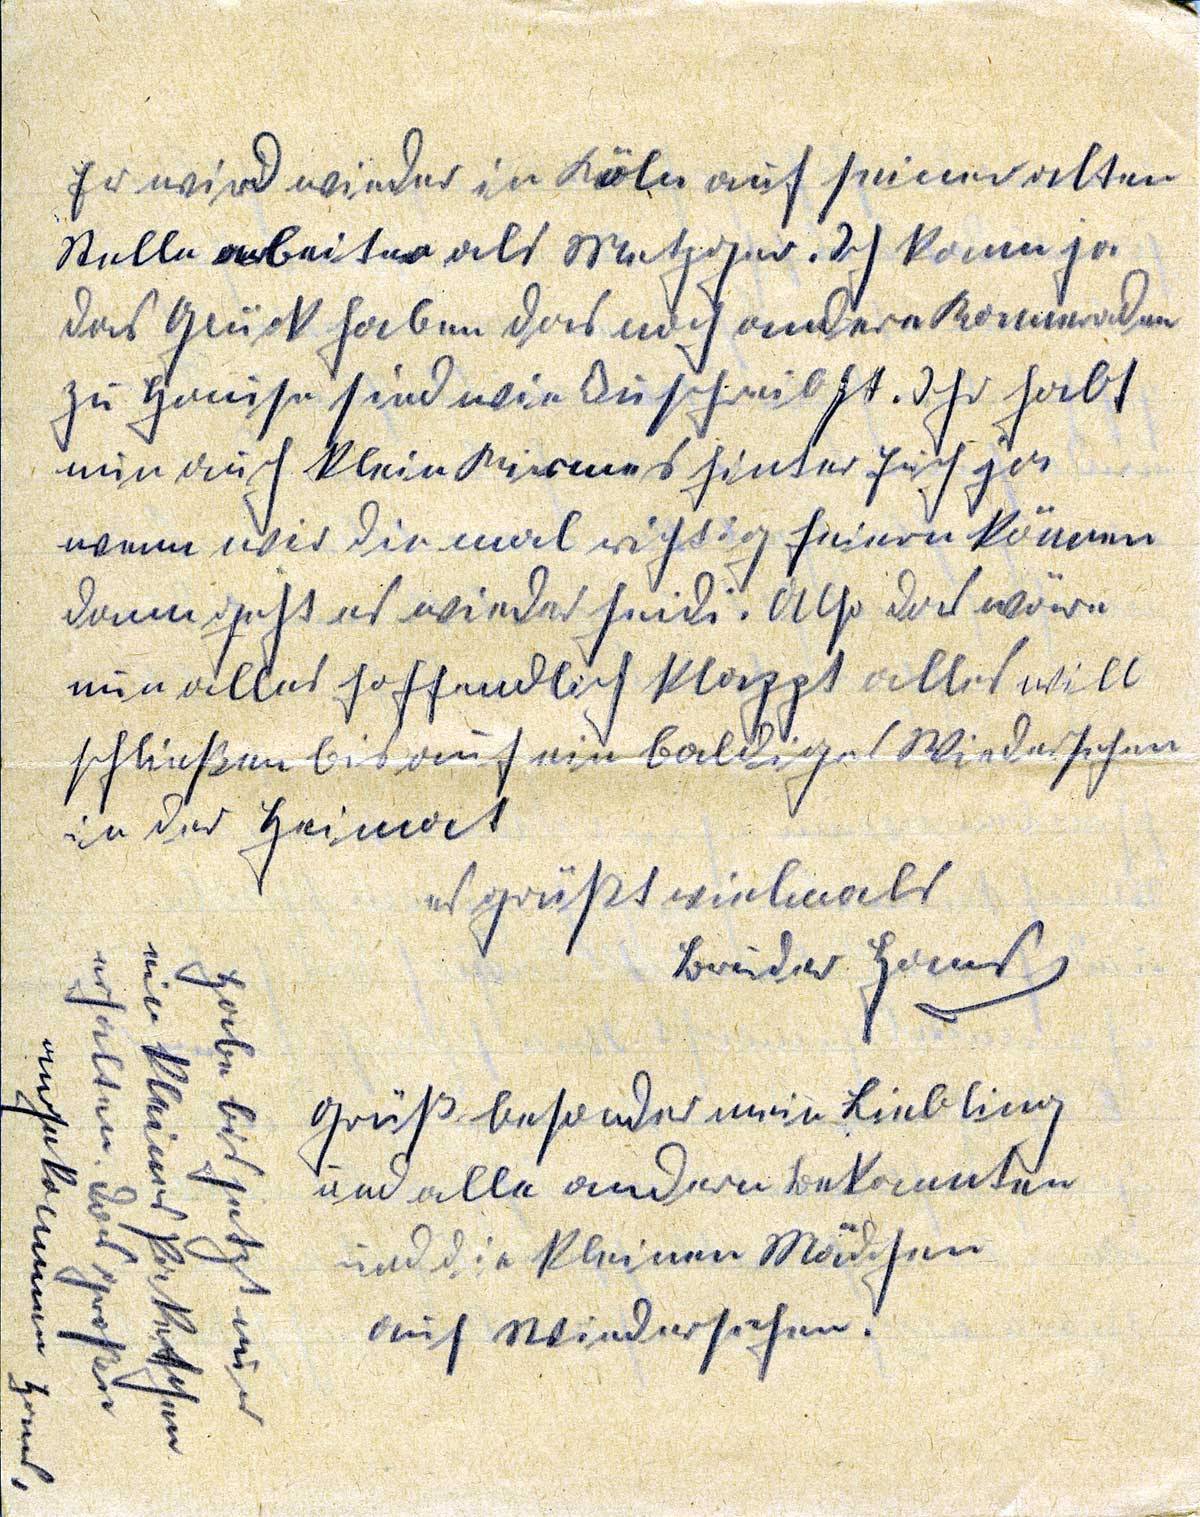 Er wird wieder in Köln auf seiner alten
Stelle arbeiten als Metzger. Ich kann ja
das Glück haben das noch andere Kameraden
zu Hause sind wie Du schreibst. Ihr habt
nun auch klein Kirmes hinter Euch ja
wenn wir die mal richtig feiern können
dann geht es wieder heidi. Also das wäre
nun alles hoffendlich klappt alles will
schließen bis auf ein baldiges Wiedersehen
in der Heimat
es grüßt vielmals
Bruder Hans
Grüß besonder mein Liebling
und alle andern Bekannten
und die kleinen Mädchen
auf Wiedersehen.
Habe bis jetzt nur
ein kleines Päckchen
erhalten. Das großen
angekommen Hans.